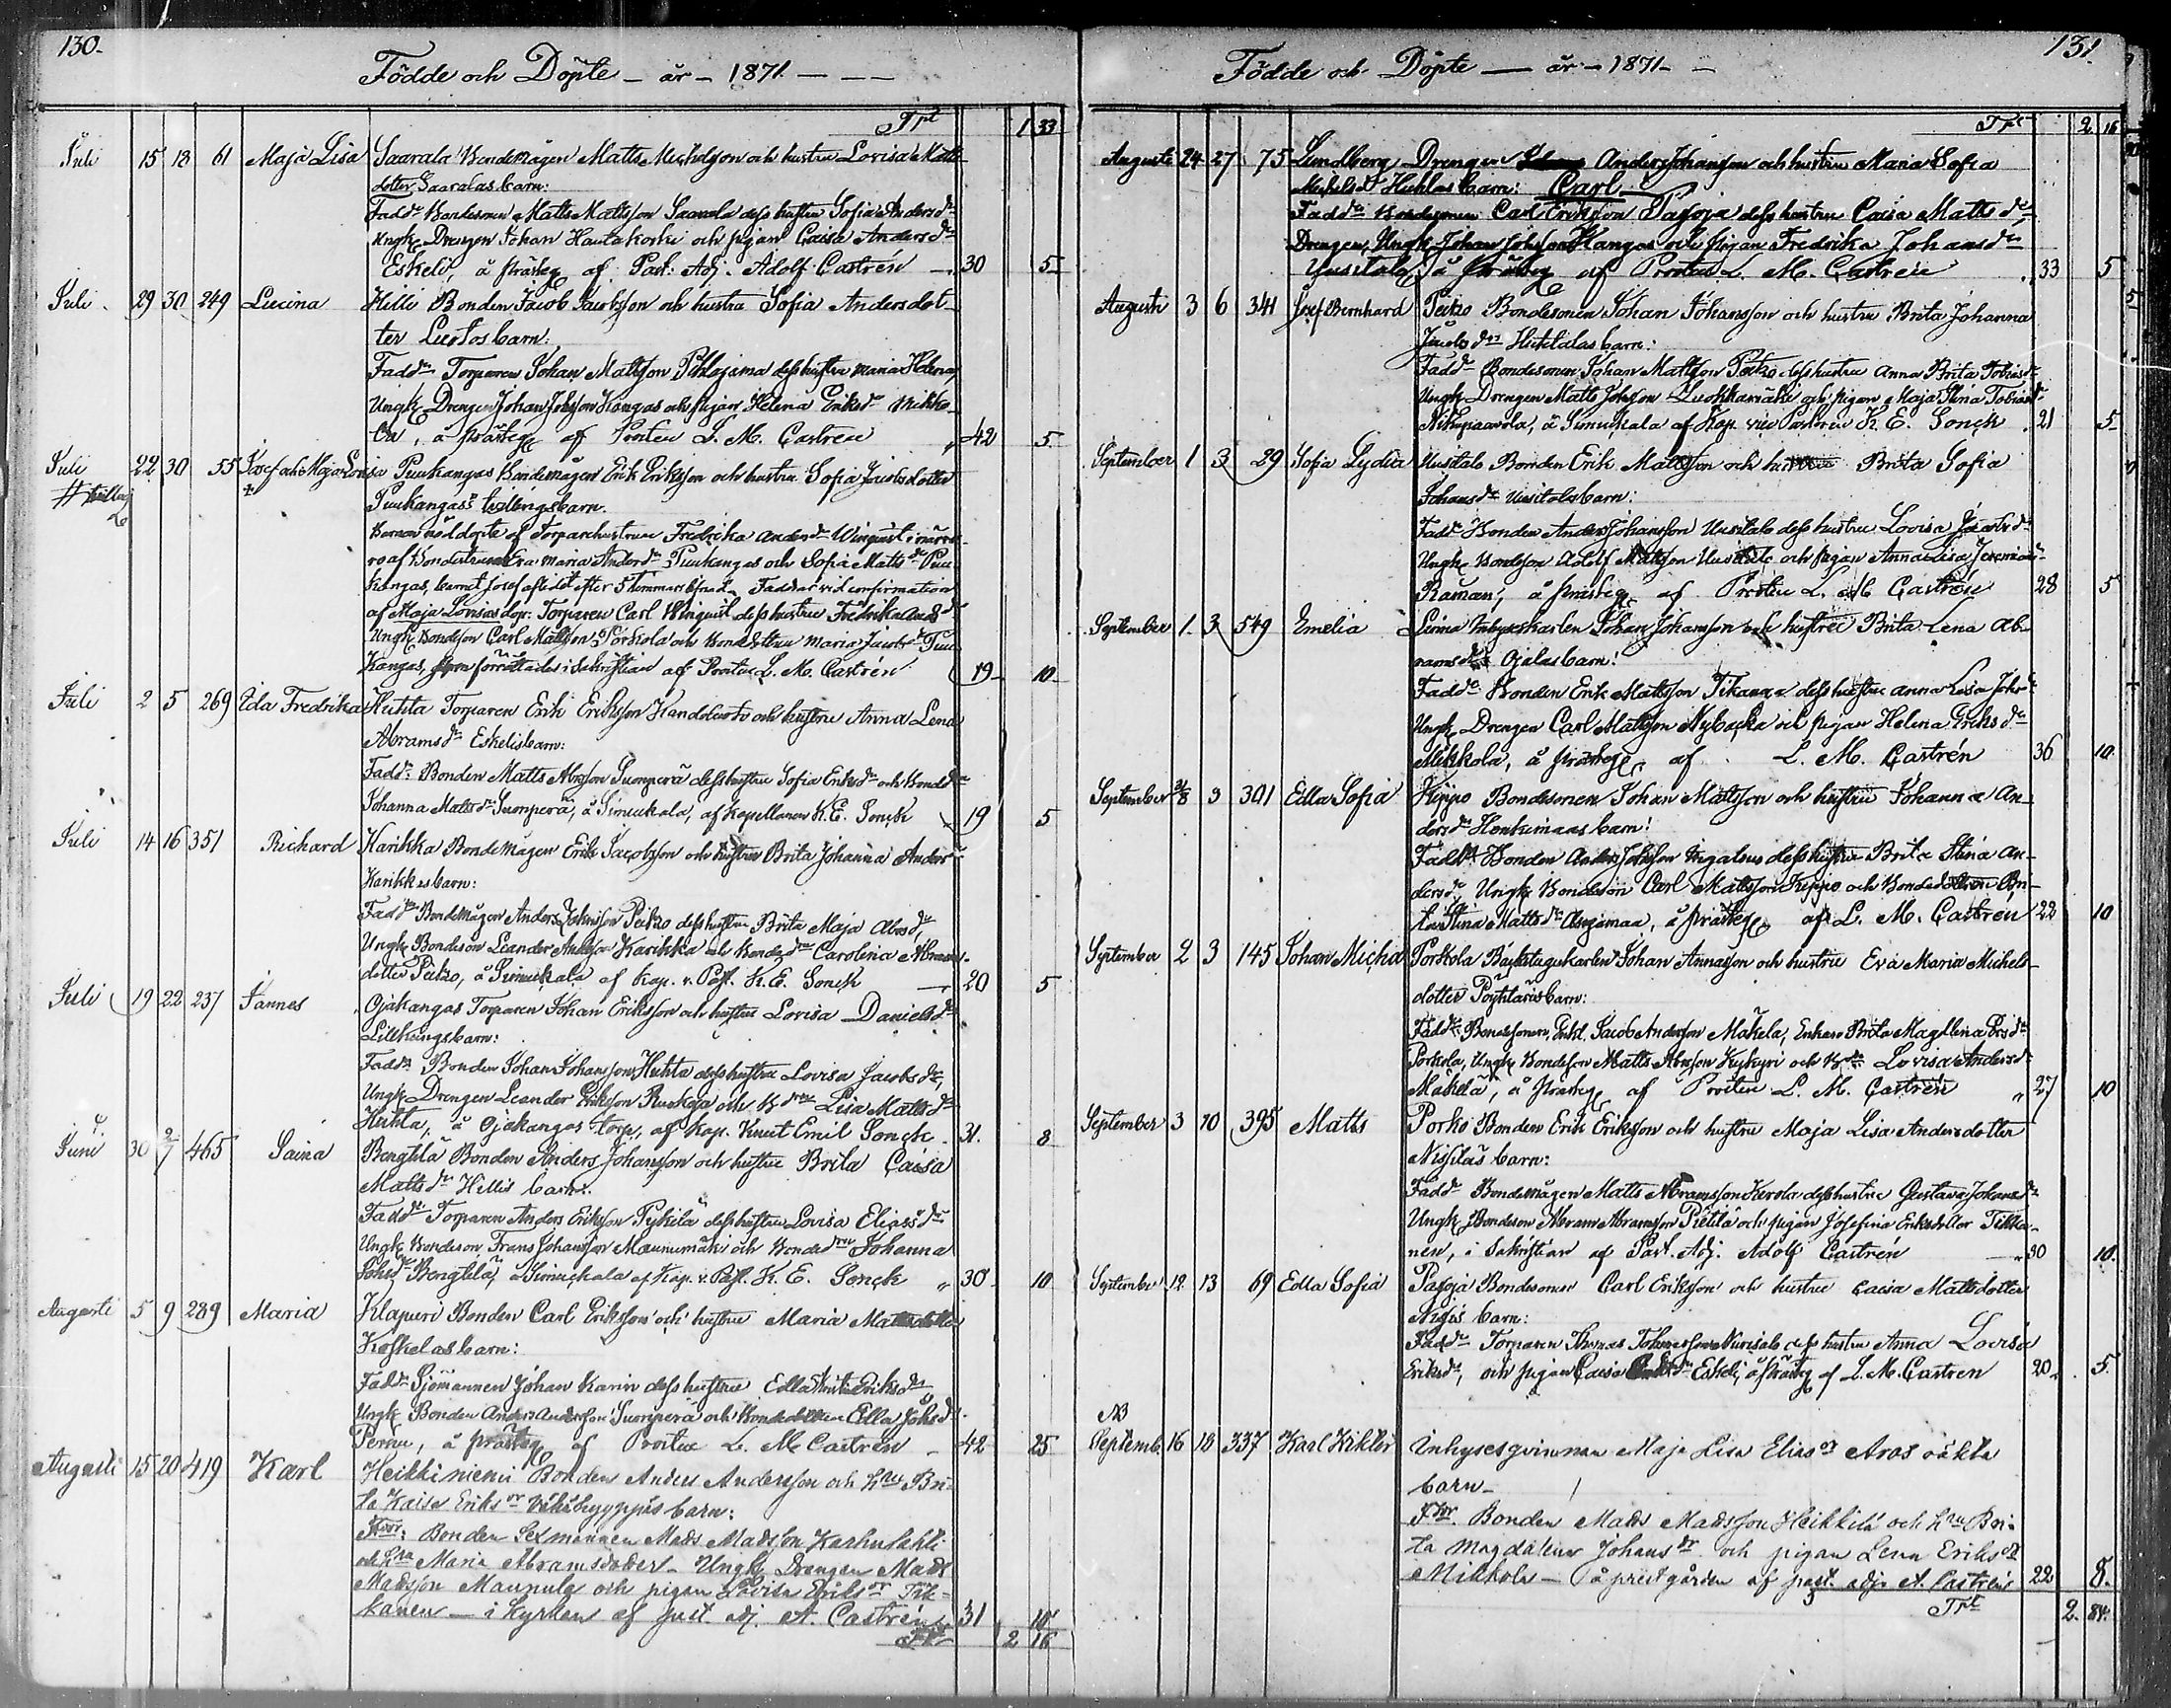 130.
Födde och Döpte – år – 1871. – – –
Trt 1 33
Juli 15 18 61 Maja Lisa Saarala Bondemågen Matts Michelsson och hustru Lovisa Matts
dotter Saaralas barn:
Fadd. Bondesonen Matts Mattsson Saarala dess hustru Sofia Andersdr
Ungk. Drengen Johan Hautakoski och pigan Caisa Andersdr
Eskeli, å prästeg af Past. Adj. Adolf Castrén – 30 5
Juli 29 30 249 Lucina Hilli Bonden Jacob Jacobsson och hustru Sofia Andersdot-
ter Luotos barn:
Fadd. Torparen Johan Mattsson Pihlajama dess hustru Maria Helena
Ungk. Drengen Johan Johsson Kangas och pigan Helena Eriksdr Mikko-
la, å prästeg af Prosten L. M. Castrén 42 5
Juli 22 30 55 Josef och Maja Lovisa Puukangas Bondemågen Erik Eriksson och hustru Sofia Jacobsdotter
# tvilling Puukangas's tvillingsbarn.
Barnen nöddöpte af Torparehustrun Fredrika Andersdr Winqvist i närva-
ro af Bondehustrun Eva Maria Andersdr Puukangas och Sofia Mattsdr Puu-
kangas, barnet Josef afled efter 5 timmars lefnad. Faddrar vid confirmation
af Maja Lovisas dop: Torparen Carl Winqvist dess hustru Fredrika Andsdr
Ungk. Bondeson Carl Mattsson Porkola och Bondedottren Maria Jacobsdr Puu-
kangas, förrättades i Sakristian af Prosten L. M. Castrén 19 10
Juli 2 5 269 Ida Fredrika Huhta Torparen Erik Eriksson Kandolouto och hustru Anna Lena
Abramsdr Eskelis barn:
Fadd. Bonden Matts Abrsson Suonperä dess hustru Sofia Eriksdr och Bonddr
Johanna Mattsdr Suonperä, å Simukkala, af Kapellanen K. E. Sonck 19 5
Juli 14 16 351 Richard Karihka Bondemågen Erik Jacobsson och hustru Brita Johanna Anders
Karihkas barn:
Fadd. Bondemågen Anders Johnsson Peitzo dess hustru Brita Maja Abrsdr,
Ungk. Bondeson Leander Andersson Karihka och Bondedr Carolina Abrams-
dotter Peitzo, å Simukkala af Kap. v. Past. K. E. Sonck – 20 5
Juli 19 22 237 Jannes Ojakangas Torparen Johan Eriksson och hustru Lovisa Danielsdr
Lillkungs barn:
Fadd. Bonden Johan Johansson Huhta dess hustru Lovisa Jacobsdr,
Ungk. Drengen Leander Eriksson Ruokoja och Bdrn Lisa Mattsdr
Huhta, å Ojakangas torp, af Kap. Knut Emil Sonck. 31. 8
Juni 30 2/7 465 Saina Bengtilä Bonden Anders Johansson och hustru Brita Caisa
Mattsdr Hillis barn:
Fadd. Torparen Anders Eriksson Pykilä dess hustru Lovisa Eliasdr
Ungk. Bondeson Frans Johansson Maunumäki och Bondedrn Johanna
Johsdr Bengtilä, å Simukkala af Kap. v. Past. K. E. Sonck „ 30 10
Augusti 5 9 289 Maria Klapuri Bonden Carl Eriksson och hustru Maria Mattsdotter
Koskelas barn:
Fadd. Sjömannen Johan Karin dess hustru Edla Eriksdr
Ungk. Bonden Anders Andersson Suonperä och Bondedottren Edla Johsdr
Pernu, å prästeg af Prosten L. M. Castrén – 42 25
Augusti 15 20 419 Karl Heikkiniemi Bonden Anders Andersson och hru Bri-
ta Kaisa Eriksdr barn:
Fdr: Bonden Sexmannen Mads Madsson Karhulahti
och hru Maria Abramsdotter – Ungk. Drengen Mads
Madsson Maunula och pigan Lovisa Eriksdr Tik-
kanen – i Kyrkan af past. adj. A. Castrén 31 10
Trt 2 16
131.
Födde och Döpte – år – 1871 – –
Trt 2. 16
Augusti 24 27 75 Lundberg Drengen Anders Johansson och hustru Maria Sofia
Michelsdr Huhtas barn: Carl –
Fadd. Bondesonen Carl Eriksson Pasoja dess hustru Caisa Mattsdr
Drengen, Ungk. Johan Johsson Kangas och pigan Fredrika Johansdr
Yusitalo, å prästeg af Prosten L. M. Castrén 33 5
Augusti 3 6 341 Josef Bernhard Peitzo Bondesonen Johan Johansson och hustru Brita Johanna
Jacobsdr Huhtalas barn:
Fadd. Bondesonen Johan Mattsson Peitzo dess hustru Anna Brita Tobiasdr
Ungk. Drengen Matts Johsson Luohkamäki och pigan Maja Stina Tobiasdr
Nikupaavola, å Simukkala af Kap. vice Pastoren K. E. Sonck. 21 5
September 1 3 29 Sofia Lydia Uusitalo Bonden Erik Mattsson och hustru Brita Sofia
Johansdr Uusitalos barn:
Fadd. Bonden Anders Johansson Uusitalo dess hustru Lovisa Jacobsdr
Ungk. Bondeson Adolf Mattsson Uusitalo och pigan Anna Lisa Jeremiasdr
Raman, å prästeg af Prosten L. M. Castrén 28 5
September 1 3 549 Emelia Inhyseskarlen Johan Johansson och hustru Brita Lena Ab-
ramsdr Ojalas barn:
Fadd. Bonden Erik Mattsson Tikanen dess hustru Anna Lisa Johsdr
Ungk. Drengen Carl Mattsson Nybacka och pigan Helena Eriksdr
Mikkola, å prästeg af L. M. Castrén 36 10.
September 31/8 3 301 Edla Sofia Keppo Bondesonen Johan Mattsson och hustru Johanna An-
dersdr Honkimaas barn:
Fadd. Bonden Anders Johsson dess hustru Brita Stina An-
dersdr, Ungk. Bondeson Carl Mattsson Keppo och Bondedottren Bri-
ta Stina Mattsdr Anjamaa, å prästeg af L. M. Castrén 22 10
September 2 3 145 Johan Michel Porkola Backstugukarlen Johan Annasson och hustru Eva Maria Michels-
dotter Pöyhtäris barn:
Fadd. Bondesonen, Enkl. Jacob Andersson Mäkelä, Enkan Brita Magdlena Persdr
Porkola, Ungk. Bondeson Matts Abrsson Kykyri och Bdr Lovisa Andersdr
Mäkelä, å prästeg af Prosten L. M. Castrén 27 10
September 3 10 395 Matts Porko Bonden Erik Eriksson och hustru Maja Lisa Andersdotter
Nissilas barn:
Fadd. Bondemågen Matts Abramsson Kerola dess hustru Gustava Johansdr
Ungk. Bondeson Abram Abramsson Pietilä och pigan Josefina Eriksdotter Tikka-
nen, i Sakristian af Past. Adj. Adolf Castrén – 30 10.
September 12 13 69 Edla Sofia Pasoja Bondesonen Carl Eriksson och hustru Caisa Mattsdotter
barn:
Fadd. Torparen Thomas Thomasson Nurisalo dess hustru Anna Lovisa
Eriksdr, och pigan Caisa Andsdr Eskeli, å prästeg af L. M. Castren 20 5.
NB
Septemb. 16 18 337 Karl Viktor Inhysesqvinnan Maja Lisa Eliasdr Aros oäkta
barn –
Fdr. Bonden Mads Madsson Heikkilä och hru Bri-
ta Magdalena Johansdr och pigan Lena Eriksdr
Mikkola – å prestgården af past. adj. A. Castrén 22 8.
Trt 2. 84.